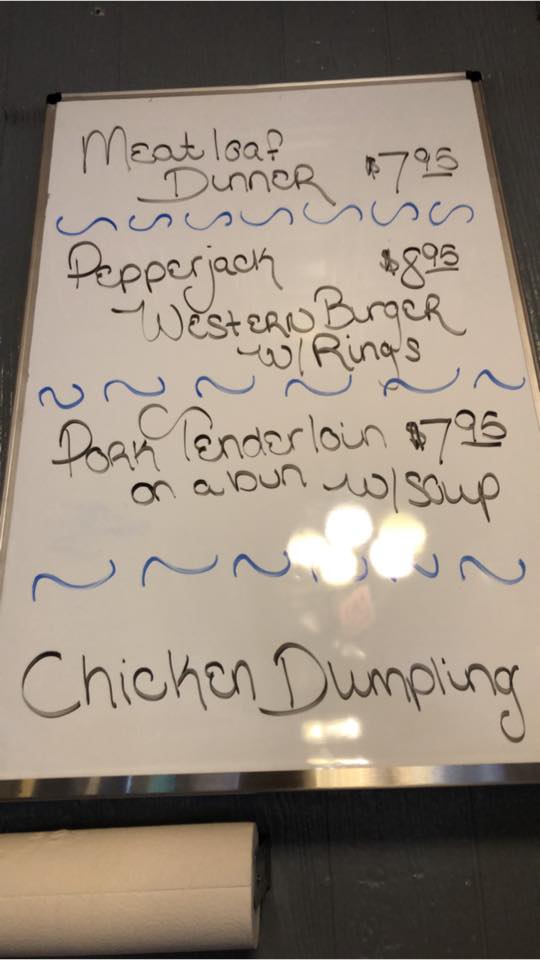 Meatloaf
Dinner $7.95
Pepperjack $8.95
Western Burger
w/Rings
Pork Tenderloin $7.95
on a bun w/soup
Chicken Dumpling